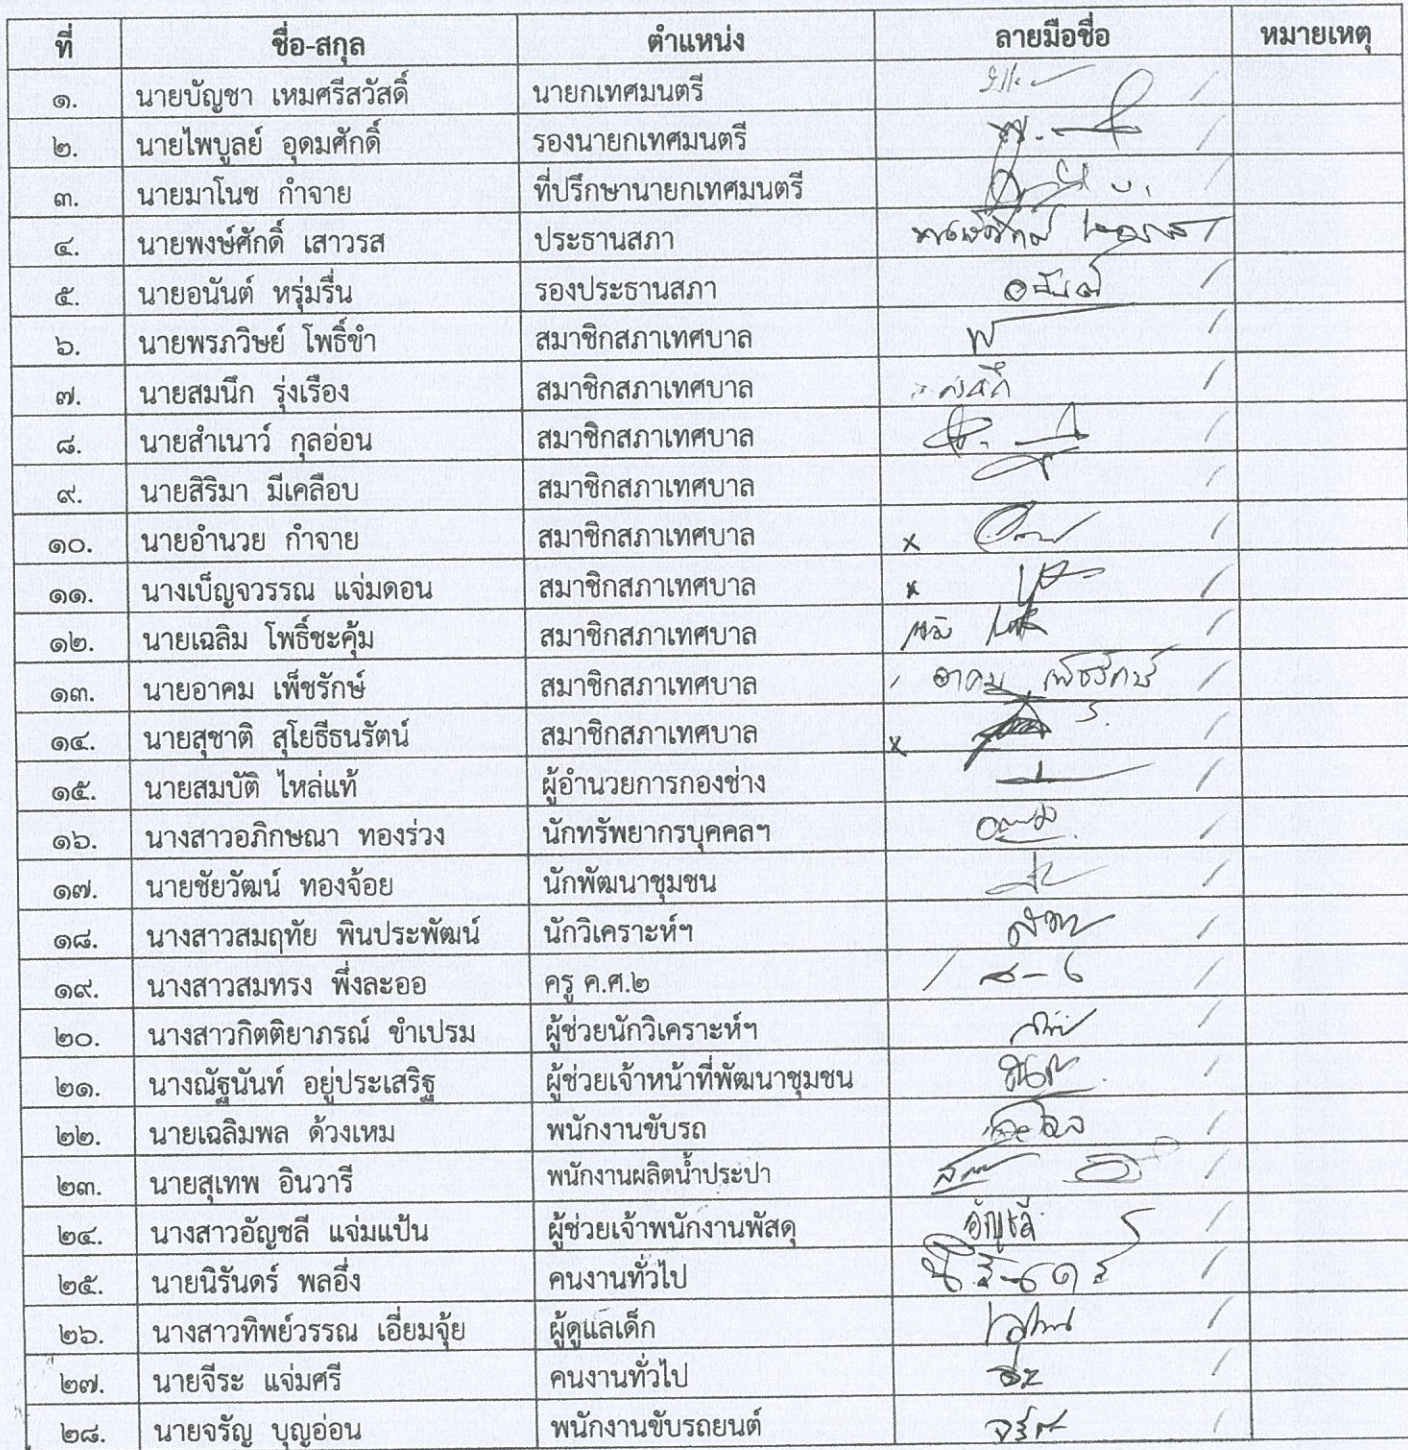 ที่ ชื่อ-สกุล ตำแหน่ง ลายมือชื่อ หมายเหตุ
๑. นายบัญชา เหมศรีสวัสดิ์ นายกเทศมนตรี /
๒. นายไพบูลย์ อุดมศักดิ์ รองนายกเทศมนตรี /
๓. นายมาโนช กำจาย ที่ปรึกษานายกเทศมนตรี /
๔. นายพงษ์ศักดิ์ เสาวรส ประธานสภา /
๕. นายอนันต์ หรุ่มรื่น รองประธานสภา อนันต์ /
๖. นายพรภวิษย์ โพธิ์ขำ สมาชิกสภาเทศบาล /
๗. นายสมนึก รุ่งเรือง สมาชิกสภาเทศบาล /
๘. นายสำเนาว์ กุลอ่อน สมาชิกสภาเทศบาล /
๙. นายสิริมา มีเคลือบ สมาชิกสภาเทศบาล /
๑๐. นายอำนวย กำจาย สมาชิกสภาเทศบาล x /
๑๑. นางเบ็ญจวรรณ แจ่มดอน สมาชิกสภาเทศบาล x /
๑๒. นายเฉลิม โพธิ์ชะคุ้ม สมาชิกสภาเทศบาล /
๑๓. นายอาคม เพ็ชรักษ์ สมาชิกสภาเทศบาล / อาคม เพ็ชรักษ์ /
๑๔. นายสุชาติ สุโยธีธนรัตน์ สมาชิกสภาเทศบาล x /
๑๕. นายสมบัติ ไหล่แท้ ผู้อำนวยการกองช่าง /
๑๖. นางสาวอภิกษณา ทองร่วง นักทรัพยากรบุคคลฯ /
๑๗. นายชัยวัฒน์ ทองจ้อย นักพัฒนาชุมชน /
๑๘. นางสาวสมฤทัย พินประพัฒน์ นักวิเคราะห์ฯ /
๑๙. นางสาวสมทรง พึ่งละออ ครู ค.ศ.๒ / /
๒๐. นางสาวกิตติยาภรณ์ ขำเปรม ผู้ช่วยนักวิเคราะห์ฯ /
๒๑. นางณัฐนันท์ อยู่ประเสริฐ ผู้ช่วยเจ้าหน้าที่พัฒนาชุมชน /
๒๒. นายเฉลิมพล ด้วงเหม พนักงานขับรถ /
๒๓. นายสุเทพ อินวารี พนักงานผลิตน้ำประปา /
๒๔. นางสาวอัญชลี แจ่มแป้น ผู้ช่วยเจ้าพนักงานพัสดุ อัญชลี /
๒๕. นายนิรันดร์ พลอึ่ง คนงานทั่วไป นิรันดร์ /
๒๖. นางสาวทิพย์วรรณ เอี่ยมจุ้ย ผู้ดูแลเด็ก /
๒๗. นายจีระ แจ่มศรี คนงานทั่วไป /
๒๘. นายจรัญ บุญอ่อน พนักงานขับรถยนต์ /